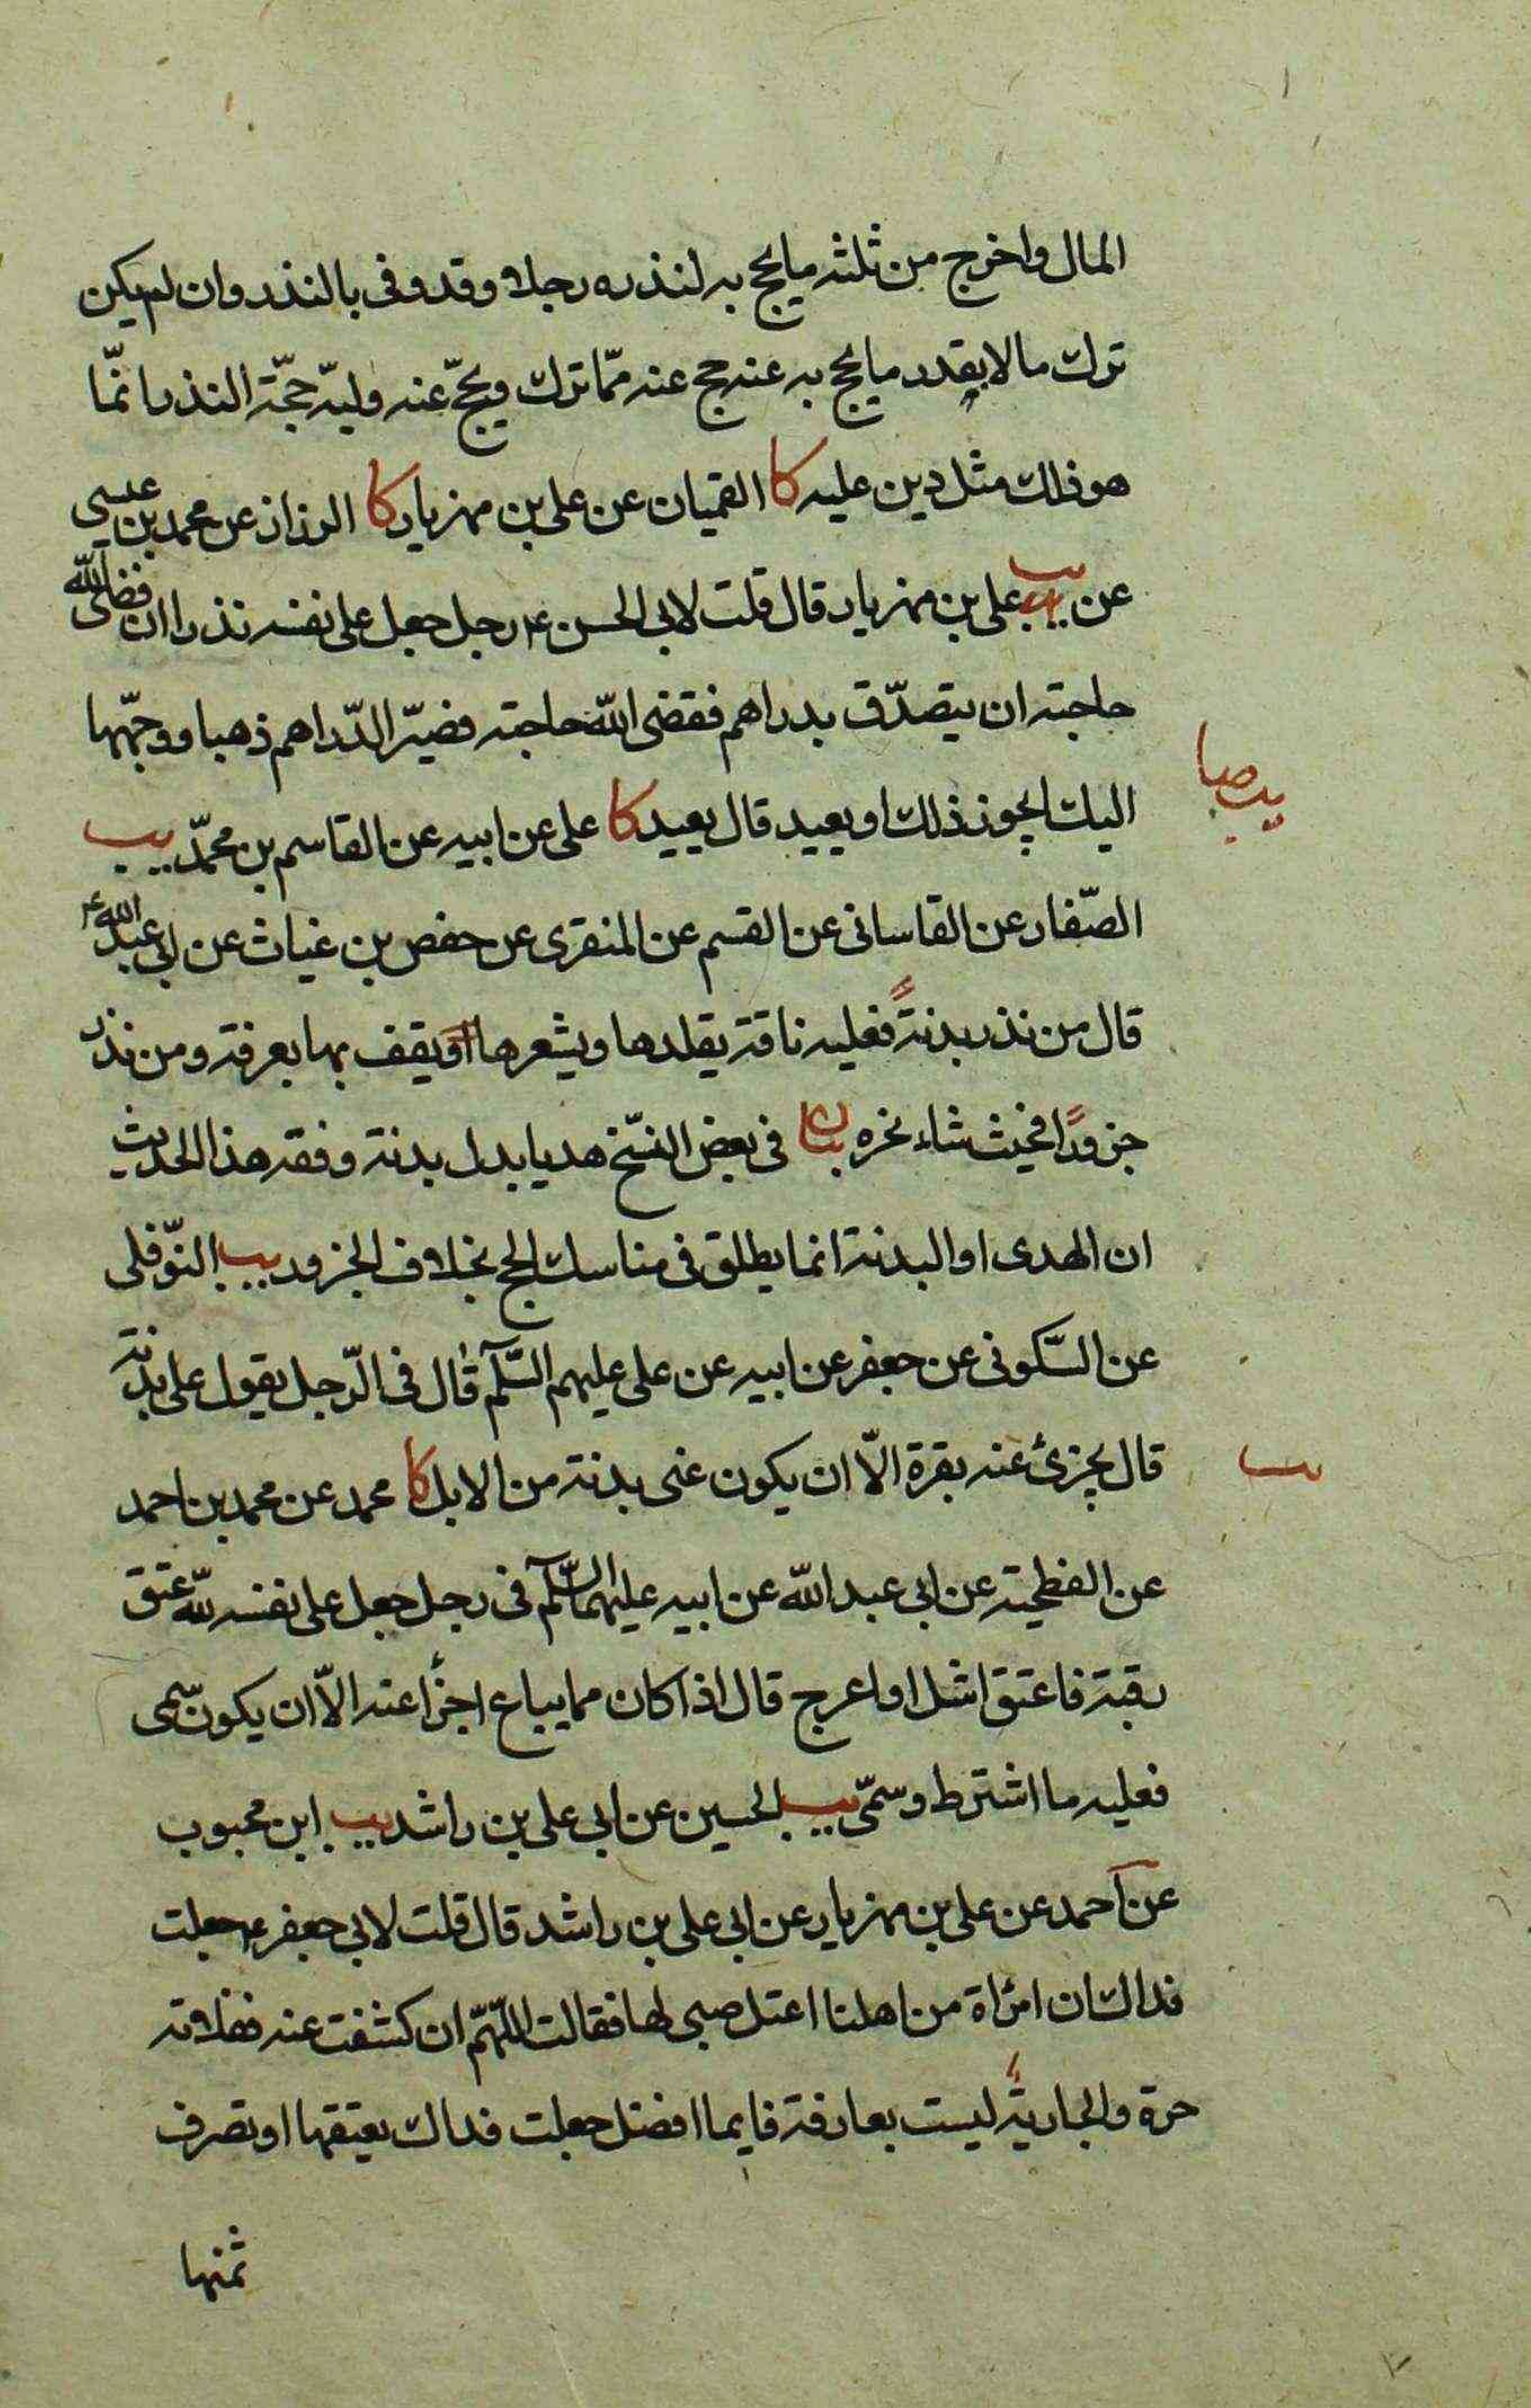 المال واخرج من ثلثه مايحج به لنذره رجلا وقد وفى بالنذر وان لم يكن
ترك مالا بقدر مايحج به عنه حج عنه ممّا ترك ويحجّ عنه وليّه حجّة النذر انمّا
هو ذلك مثل دين عليه كا القميان عن على بن مهزيار كا الرزاز عن محمد بن عيسى
عن يب على بن مهزيار قال قلت لابى الحسن ع رجل جعل على نفسه نذرا ان قضى الله
حاجته ان يتصدّق بدراهم فقضى الله حاجته فصيّر الدّراهم ذهبا ووجّهها
اليك ايجوز ذلك او يعيد قال يعيد كا على عن ابيه عن القاسم بن محمّد يب
الصّفار عن القاسانى عن القسم عن المنقرى عن حفص بن غياث عن ابى عبد الله ع
قال من نذر بدنةً فعليه ناقة يقلدها ويشعرها ويقف بها بعرفة ومن نذر
جزورًا فحيث شاء نحره بيان فى بعض النسّخ هديا بدل بدنة وفقه هذا الحديث
ان الهدى او البدنة انما يطلق فى مناسك الحج بخلاف الجزور يب النّوفلى
عن السّكونى عن جعفر عن ابيه عن على عليهم السّلم قال فى الرّجل يقول على بدنة
قال يجزئ عنه بقرة الاّ ان يكون عنى بدنة من الابل كا محمد عن محمد بن احمد
عن الفطحية عن ابى عبد الله عن ابيه عليهما السّلم فى رجل جعل على نفسه لله عتق
رقبة فاعتق اشل او اعرج قال اذا كان مما يباع اجزأ عنه الاّ ان يكون سمى
فعليه ما اشترط وسمّى يب الحسين عن ابى على بن راشد يب ابن محبوب
عن احمد عن على بن مهزيار عن ابى على بن راشد قال قلت لابى جعفر ع جعلت
فداك ان امرأة من اهلنا اعتل صبى لها فقالت اللّهمّ ان كشفت عنه ففلانة
حرة والجارية ليست بعارفة فايما افضل جعلت فداك يعتقها او تصرف
ثمنها
يب صا
يب